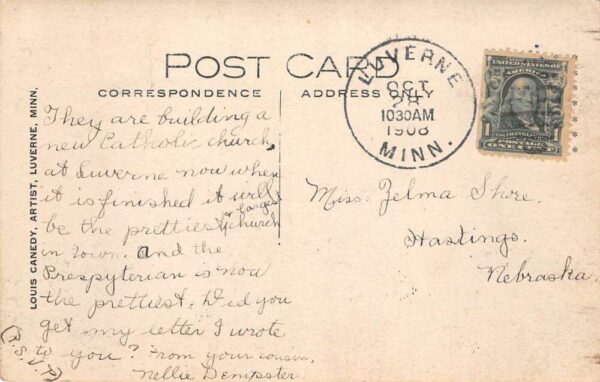 POST CARD
CORRESPONDENCE
ADDRESS ONLY
LUVERNE
OCT
28
1030AM
1908
MINN.
UNITED STATES OF
AMERICA
1
1
FRANKLIN
POSTAGE
ONE CENT
LOUIS CANEDY, ARTIST, LUVERNE, MINN.
They are building a
new Catholic church
at Luverne now when
it is finished it will
& largest
be the prettiest church
in town. and the
Prespyterian is now
the prettiest. Did you
get my letter I wrote
to you? From your cousin,
Nellie Dempster
(R.S.V.P.)
Miss. Zelma Shre.
Hastings.
Nebraska.